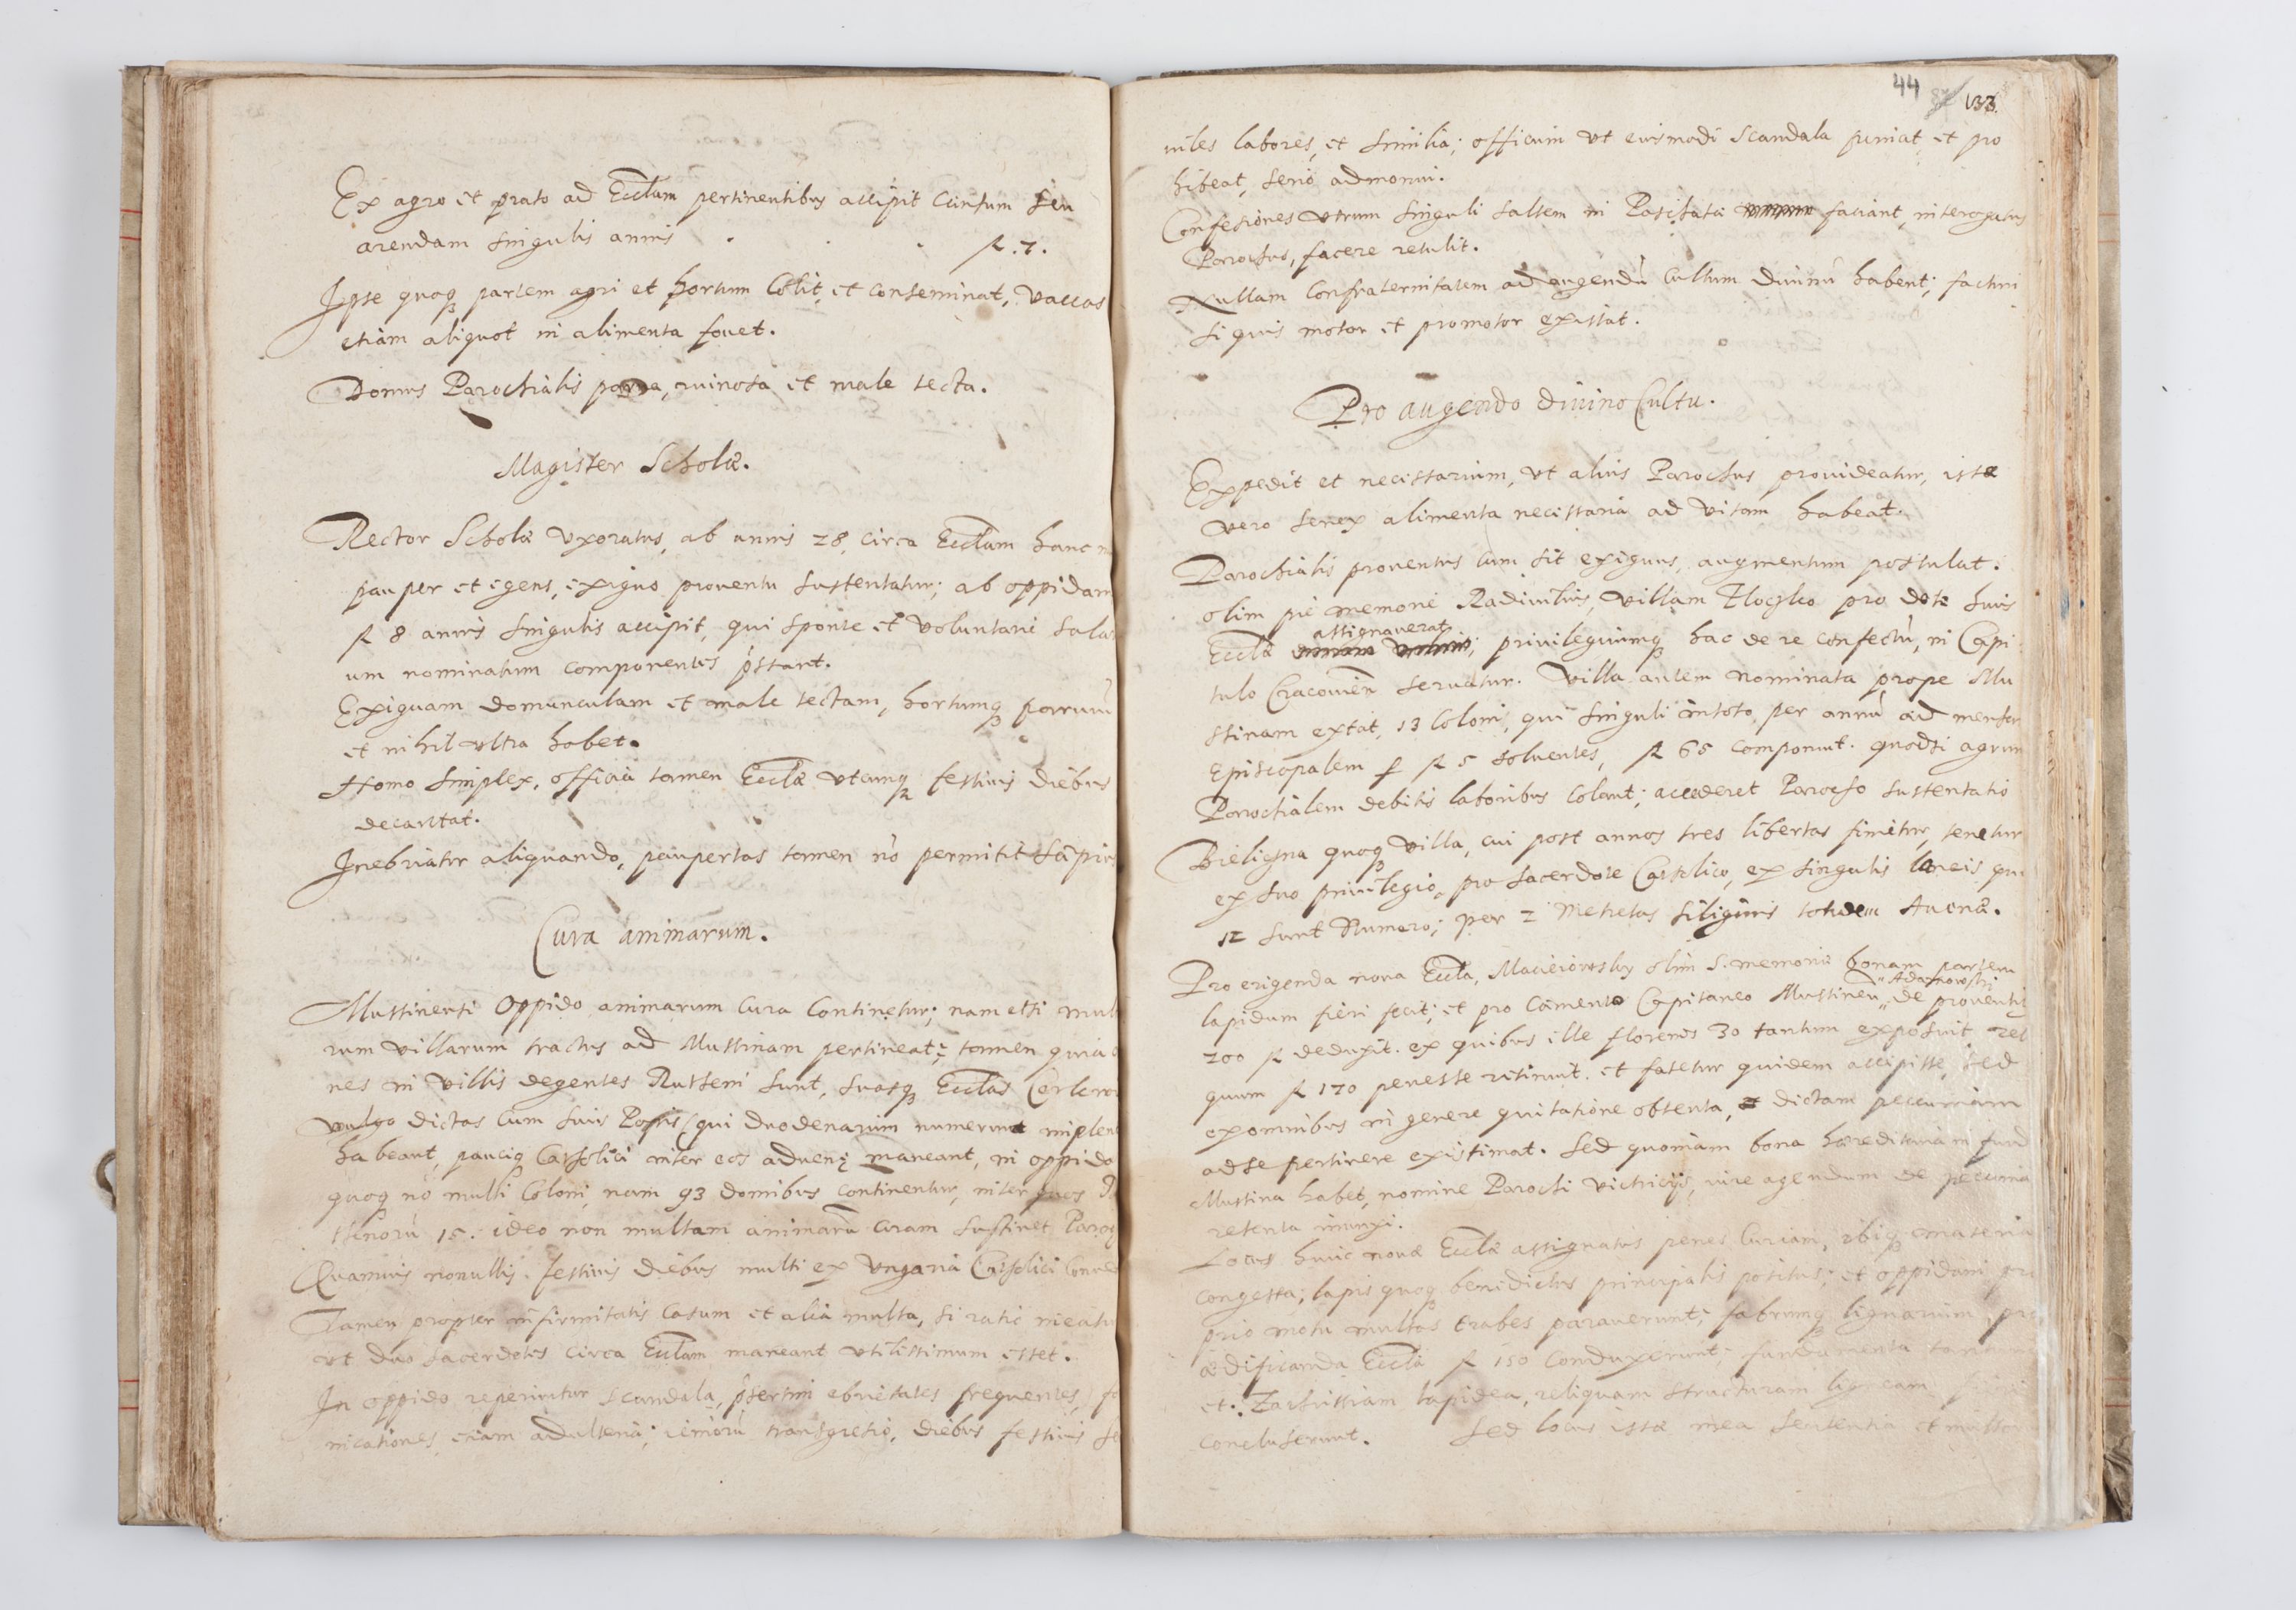 Ex agro et prato ad Eccl̃am pertinentibus accipit Censum seu
arendam singulis annis . . . fl. 7.
Ipse quoq; partem agri et hortum Colit, et conseminat, vaccas
etiam aliquot in alimenta fouet.
Domus Parochialis parua, ruinosa et male tecta.
Magister Scholæ.
Rector Scholæ vxoratus, ab annis 28, circa Eccl̃am hanc
pauper et egens, exiguo prouentu sustentatur; ab oppidan
fl 8 annis singulis accipit, qui sponte et voluntarie sala
um nominatum componentes p̃stant.
Exiguam domunculam et male tectam, hortumq; paruum
et nihil vltra habet.
Homo simplex, officia tamen Eccl̃æ vtcumq; festiuis diebus
decantat.
Inebriatur aliquando, paupertas tamen nō permitit sæpiu
Cura animarum.
Mussinensi Oppido animarum Cura Continetur; nam etsi mul
rum villarum tractus ad Mussinam pertineat; tamen quia o
nes in villis degentes Rutheni sunt, suasq; Eccl̃as Cerkew
vulgo dictas cum suis Popis (qui duodenarium numerum implent
habeant, pauciq; Catholici inter eos aduenę maneant, in oppido
quoq; nō multi Coloni, nam 93 domibus continentur, inter quos
thenorū 15. ideo non multam animarū curam sustinet Paroc
Quamuis nonullis festiuis diebus multi ex Vngaria Catholici Conue
Tamen propter infirmitatis casum et alia multa, si ratio ineatur
vt duo sacerdotes circa Eccl̃am maneant vtilissimum esset.
In oppido reperiuntur scandala, p̃sertim ebrietates frequentes, fo
nicationes, etiam adulteria; ieiuniorū transgressio, diebus festiuis se
44 133.
uiles labores, et similia; officium vt eiusmodi scandala puniat et pro
hibeat, serio admonui.
Confessiones vtrum singuli saltem in Paschate faciant, interogatus
Parochus, facere retulit.
Nullam Confraternitatem ad augendū Cultum diuinū habent; facturi
si quis motor et promotor existat.
Pro augendo diuino Cultu.
Expedit et necessarium, vt alius Parochus prouideatur, iste
vero senex alimenta necessaria ad vitam habeat.
Parochialis prouentus cum sit exiguus, augmentum postulat.
olim piæ memoriæ Radiuilius, villam Zlocko pro dote huic
assignauerat
Eccl̃æ ; priuilegiumq; hac de re confectū, in Capi
tulo Cracouien̄ seruatur. Villa autem nominata prope Mu
stinam extat, 13 Coloni, qui singuli in toto, per annū ad mensam
Episcopalem p fl 5 soluentes, fl 65 componunt. quodsi agrum
Parochialem debitis laboribus Colant; accederet Parocho sustentatio
Bieligna quoq; villa, cui post annos tres libertas finitur, tenetur
ex suo priuilegio, pro sacerdote Catholico, ex singulis laneis qui
12 sunt Numero; per 2 Metretas siliginis totidem Auenæ.
Pro erigenda noua Eccl̃a, Macieiowsky olim S. memoriæ bonam partem
lapidum fieri fecit; et pro Cæmento Capitaneo Mussinen̄ de prouentib
200 fl deduxit. ex quibus ille florenos 30 tantum exposuit rel
quum fl 170 penes se retinuit. et fatetur quidem accepisse, sed
ex omnibus in genere quitatione obtenta, dictam pecuniam
ad se pertinere existimat. Sed quoniam bona hæreditaria in fund
Mustina habet, nomine Parochi Victricijs, iure agendum de pecunia
retenta iniunxi.
Locus huic nouæ Eccl̃æ assignatus penes Curiam, ibiq; materia
congesta; lapis quoq; benedictus principalis positus; et oppidani pro
prio motu multas trabes parauerunt; fabrumq; lignarium pro
ædificanda Eccl̃a fl 150 Conduxerunt; fundamenta tantum
et Zachristiam lapidea, reliquam structuram ligneam
concluserunt. Sed locus iste mea sententia et multor